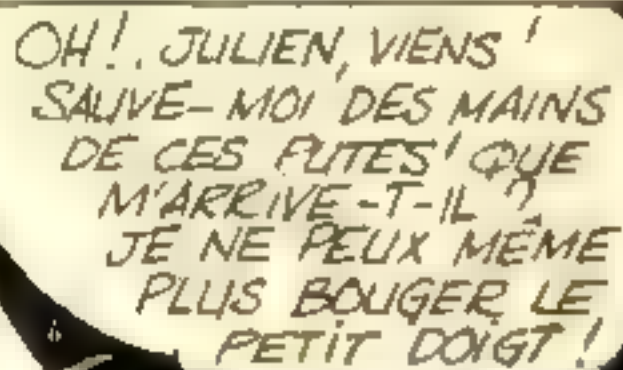 OH!. JULIEN, VIENS!
SAUVE-MOI DES MAINS
DE CES PUTES! QUE
M'ARRIVE-T-IL?
JE NE PEUX MÊME
PLUS BOUGER LE
PETIT DOIGT!